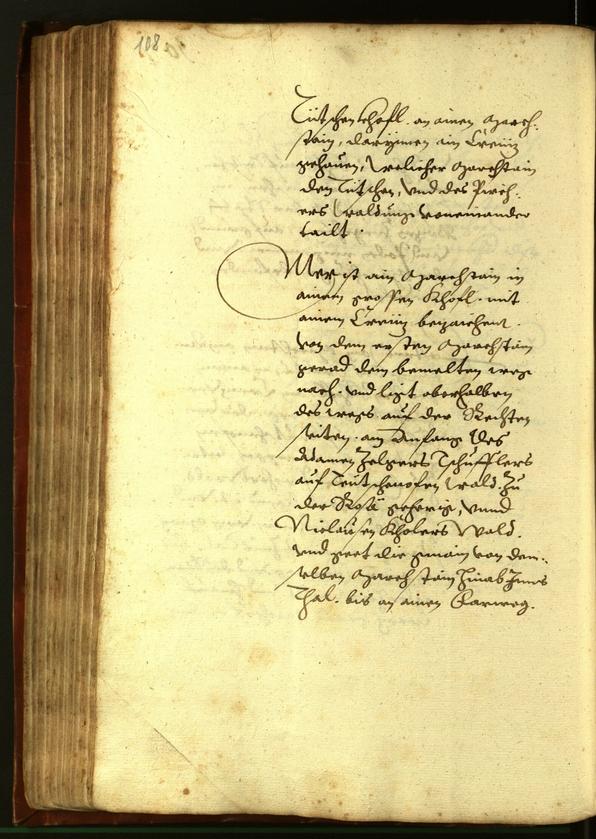 108
Tütschen khofl. an ainen March-
stain, darynnen ain Creüz
gehauen, Welicher Marchstain
den Tütschen, Vnd des Pirch-
ers Waldung voneinander
tailt.
Mer ist ain Marchstain in
ainem grossen Khofl. mit
ainem Creüz bezaichent.
von dem ersten Marchstain
gerad dem bemelten weeg
nach. vnd ligt oberhalben
des wegs auf der Rechten
seiten. am Anfang des
Adamen Zelgers Tschufflers
auf Teütschnofen Wald. Zu
der Rosä gehörig, vnnd
Niclausen Kholers Wald.
vnd geet die gmain von dem-
selben Marchstain hinab Inns
Thal. bis an ainen Karweg.